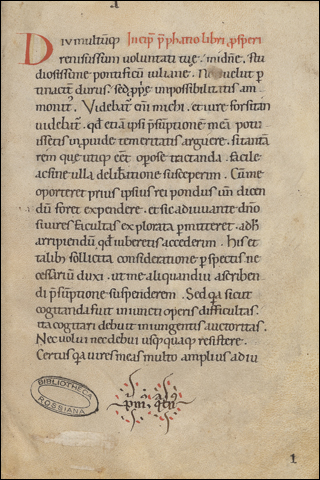 Diu multūq; Incip̄ p̄phatio libri ꝓsperi
renisi sum voluntati tuę. mi dn̄e. stu
diosissime pontificum iuliane. No uelut p̱
tinacit̄ durus. sed ꝓp̄e impossibilitatis am
monit᷒. Videbat᷑ eni᷒ michi. et iure forsitan
uidebat᷑. qd̄ etiā ipsi p̄sūptionē meā potu
issetis uꝑ pude temeritatis arguere. si tantā
rem que utiq; eēt opose tractanda. facile
ac sine ulla delibatione susceperim. Cū me
oporteret prius ipsius rei pondus un̄ dicen
dū foret expendere. et sic adiuuante dn̄o
si uires facultas explorata pmitteret. adh̓
arripiendū qd̄ iuberetis accederim. His et
talib; sollicita consideratione ꝑspectis ne
cessariū duxi. ut me aliquandiu a scriben
di p̄sūptione suspenderem. Sed q̄a sicut
cogitanda fuit iniuncti operis difficultas.
ita cogitari debuit iniungentis auctoritas.
Nec uolui nec debui usq; quaq; resistere.
Certus q̄a uires meas multo amplius adiu
BIBLIOTHECA
ROSSIANA
1